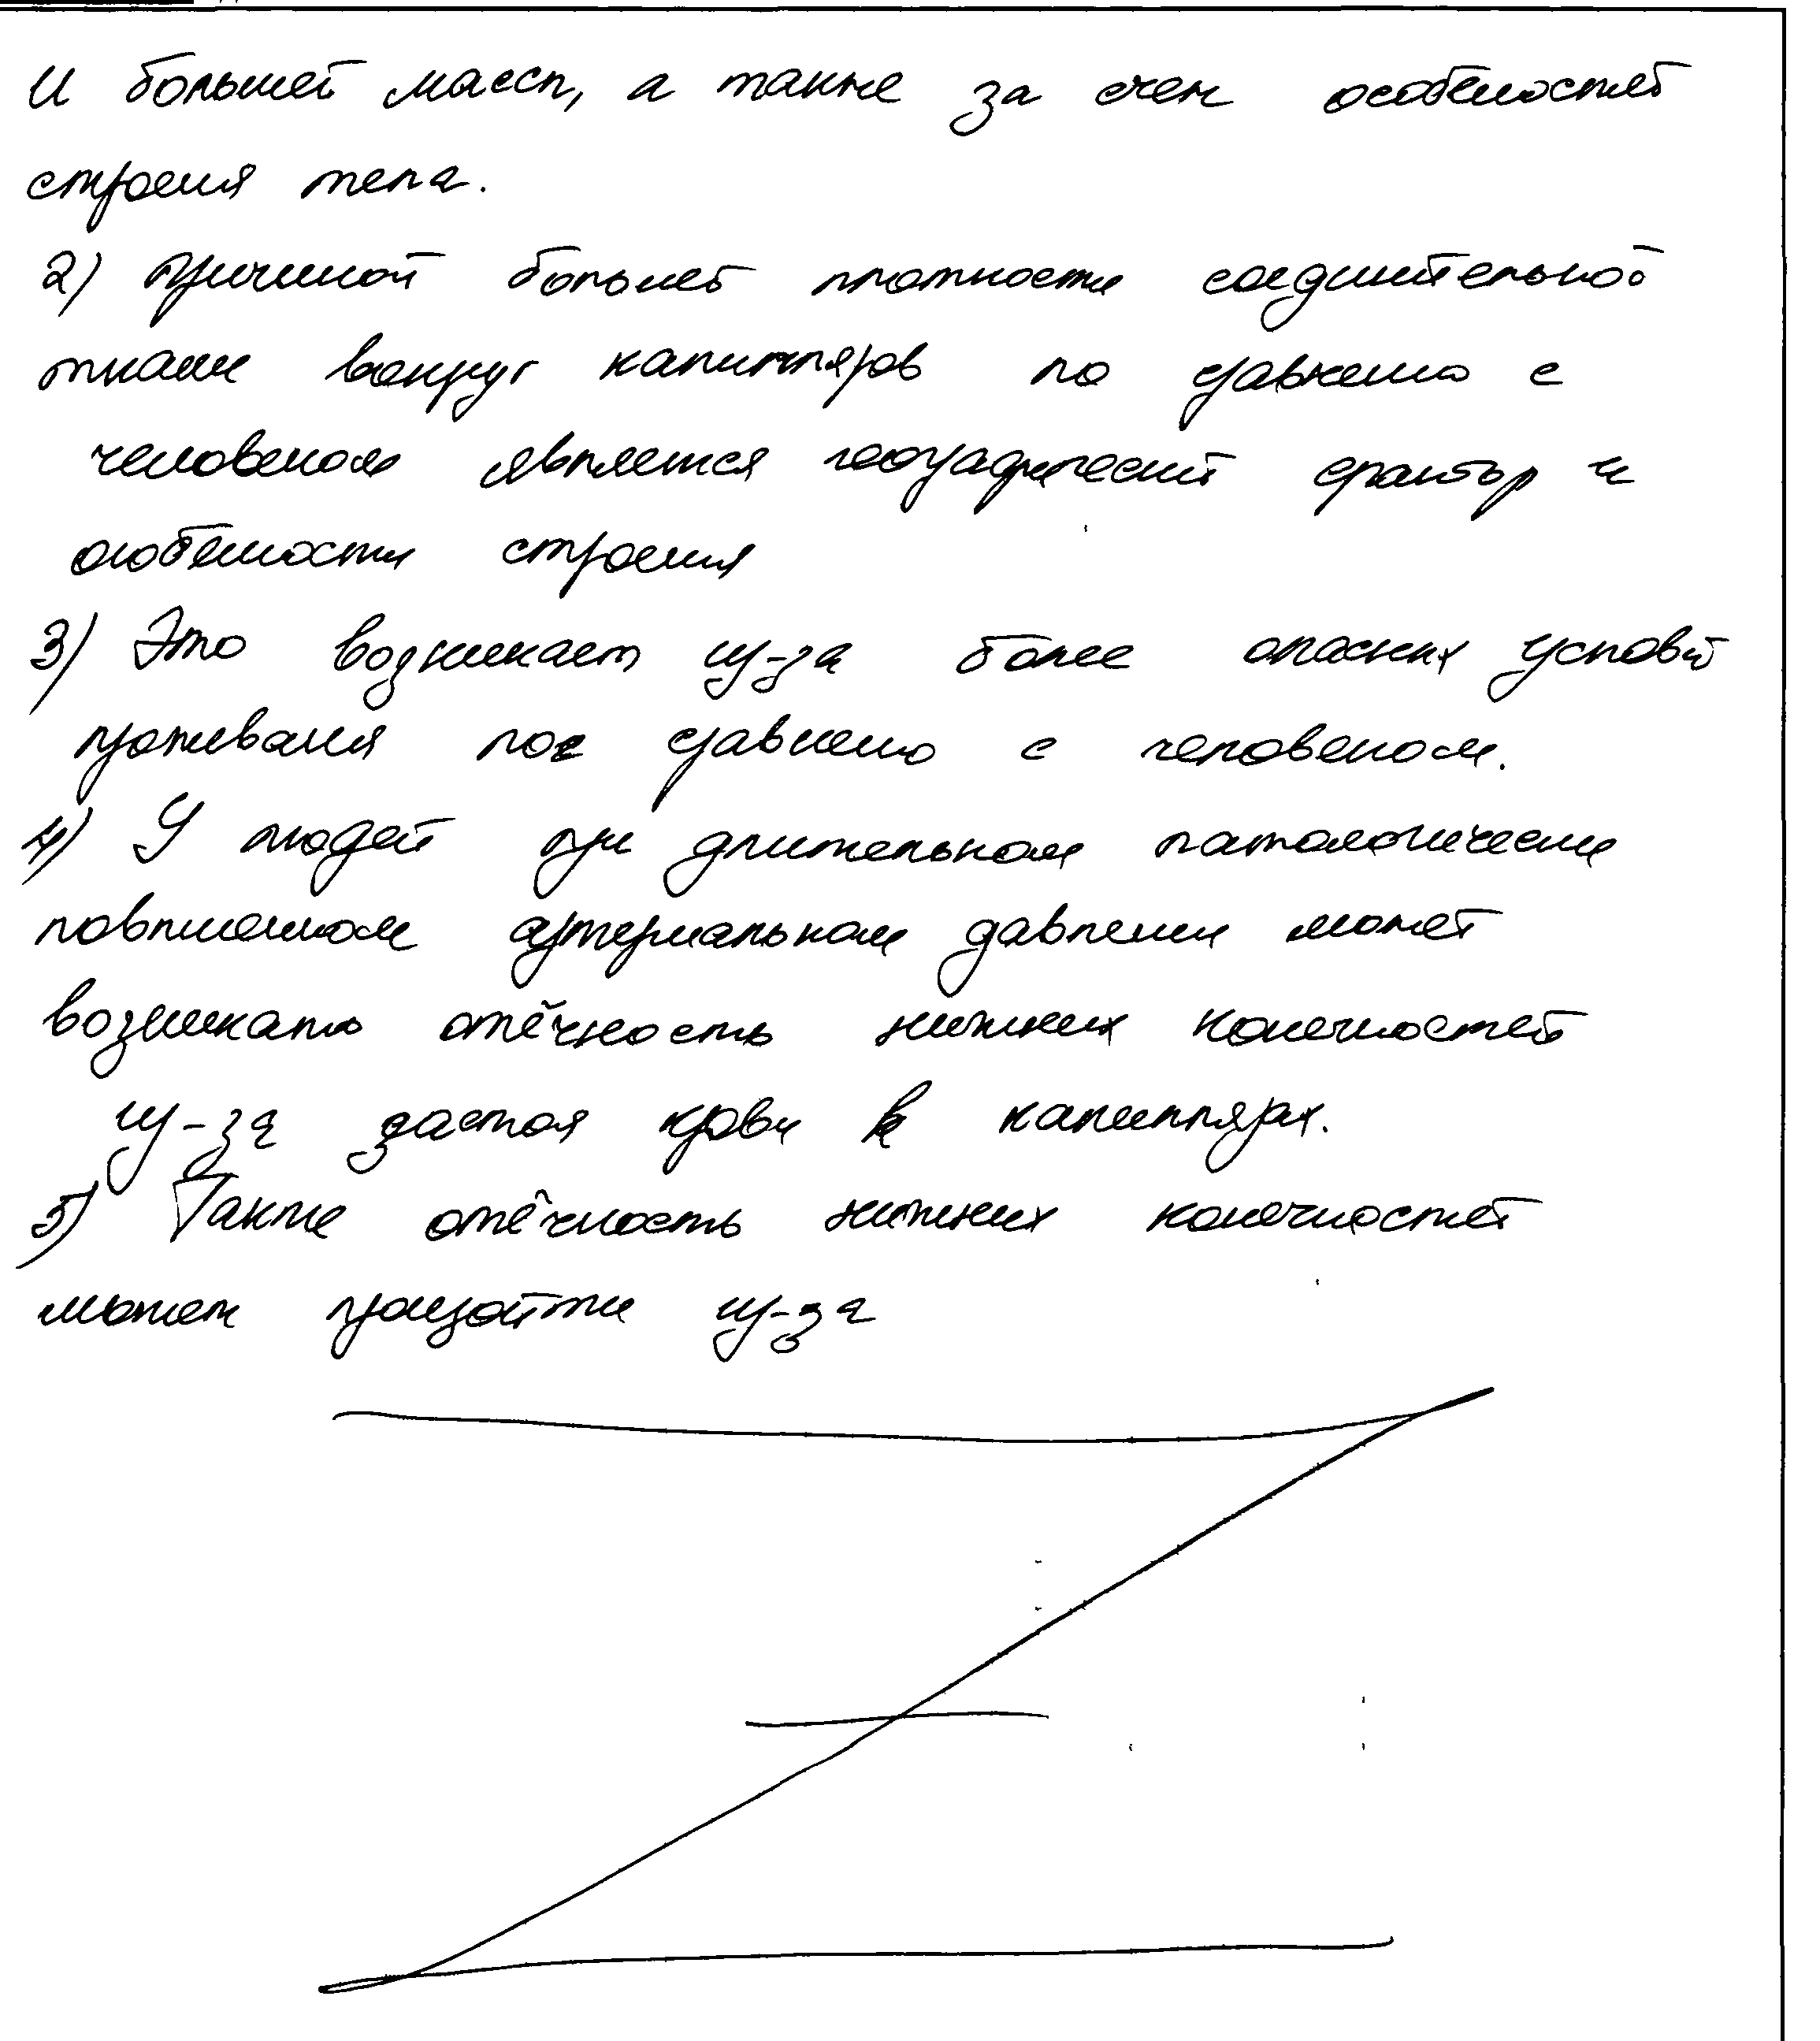 и большей массы, а также за счет особеностей
строения тела.
2) причиной большей плотности соединительной
ткани вокруг капилляров по сравнению с
человеком является географический фактор и
особености строения
3) Это возникает из-за более опасных условий
проживания по сравнению с человеком.
4) У людей при длительном патологически
повышенном артериальном давлении может
возникать отёчность нижних конечностей
из-за застоя крови в капиллярах.
5) Также отёчность нижних конечностей
может произойти из-за